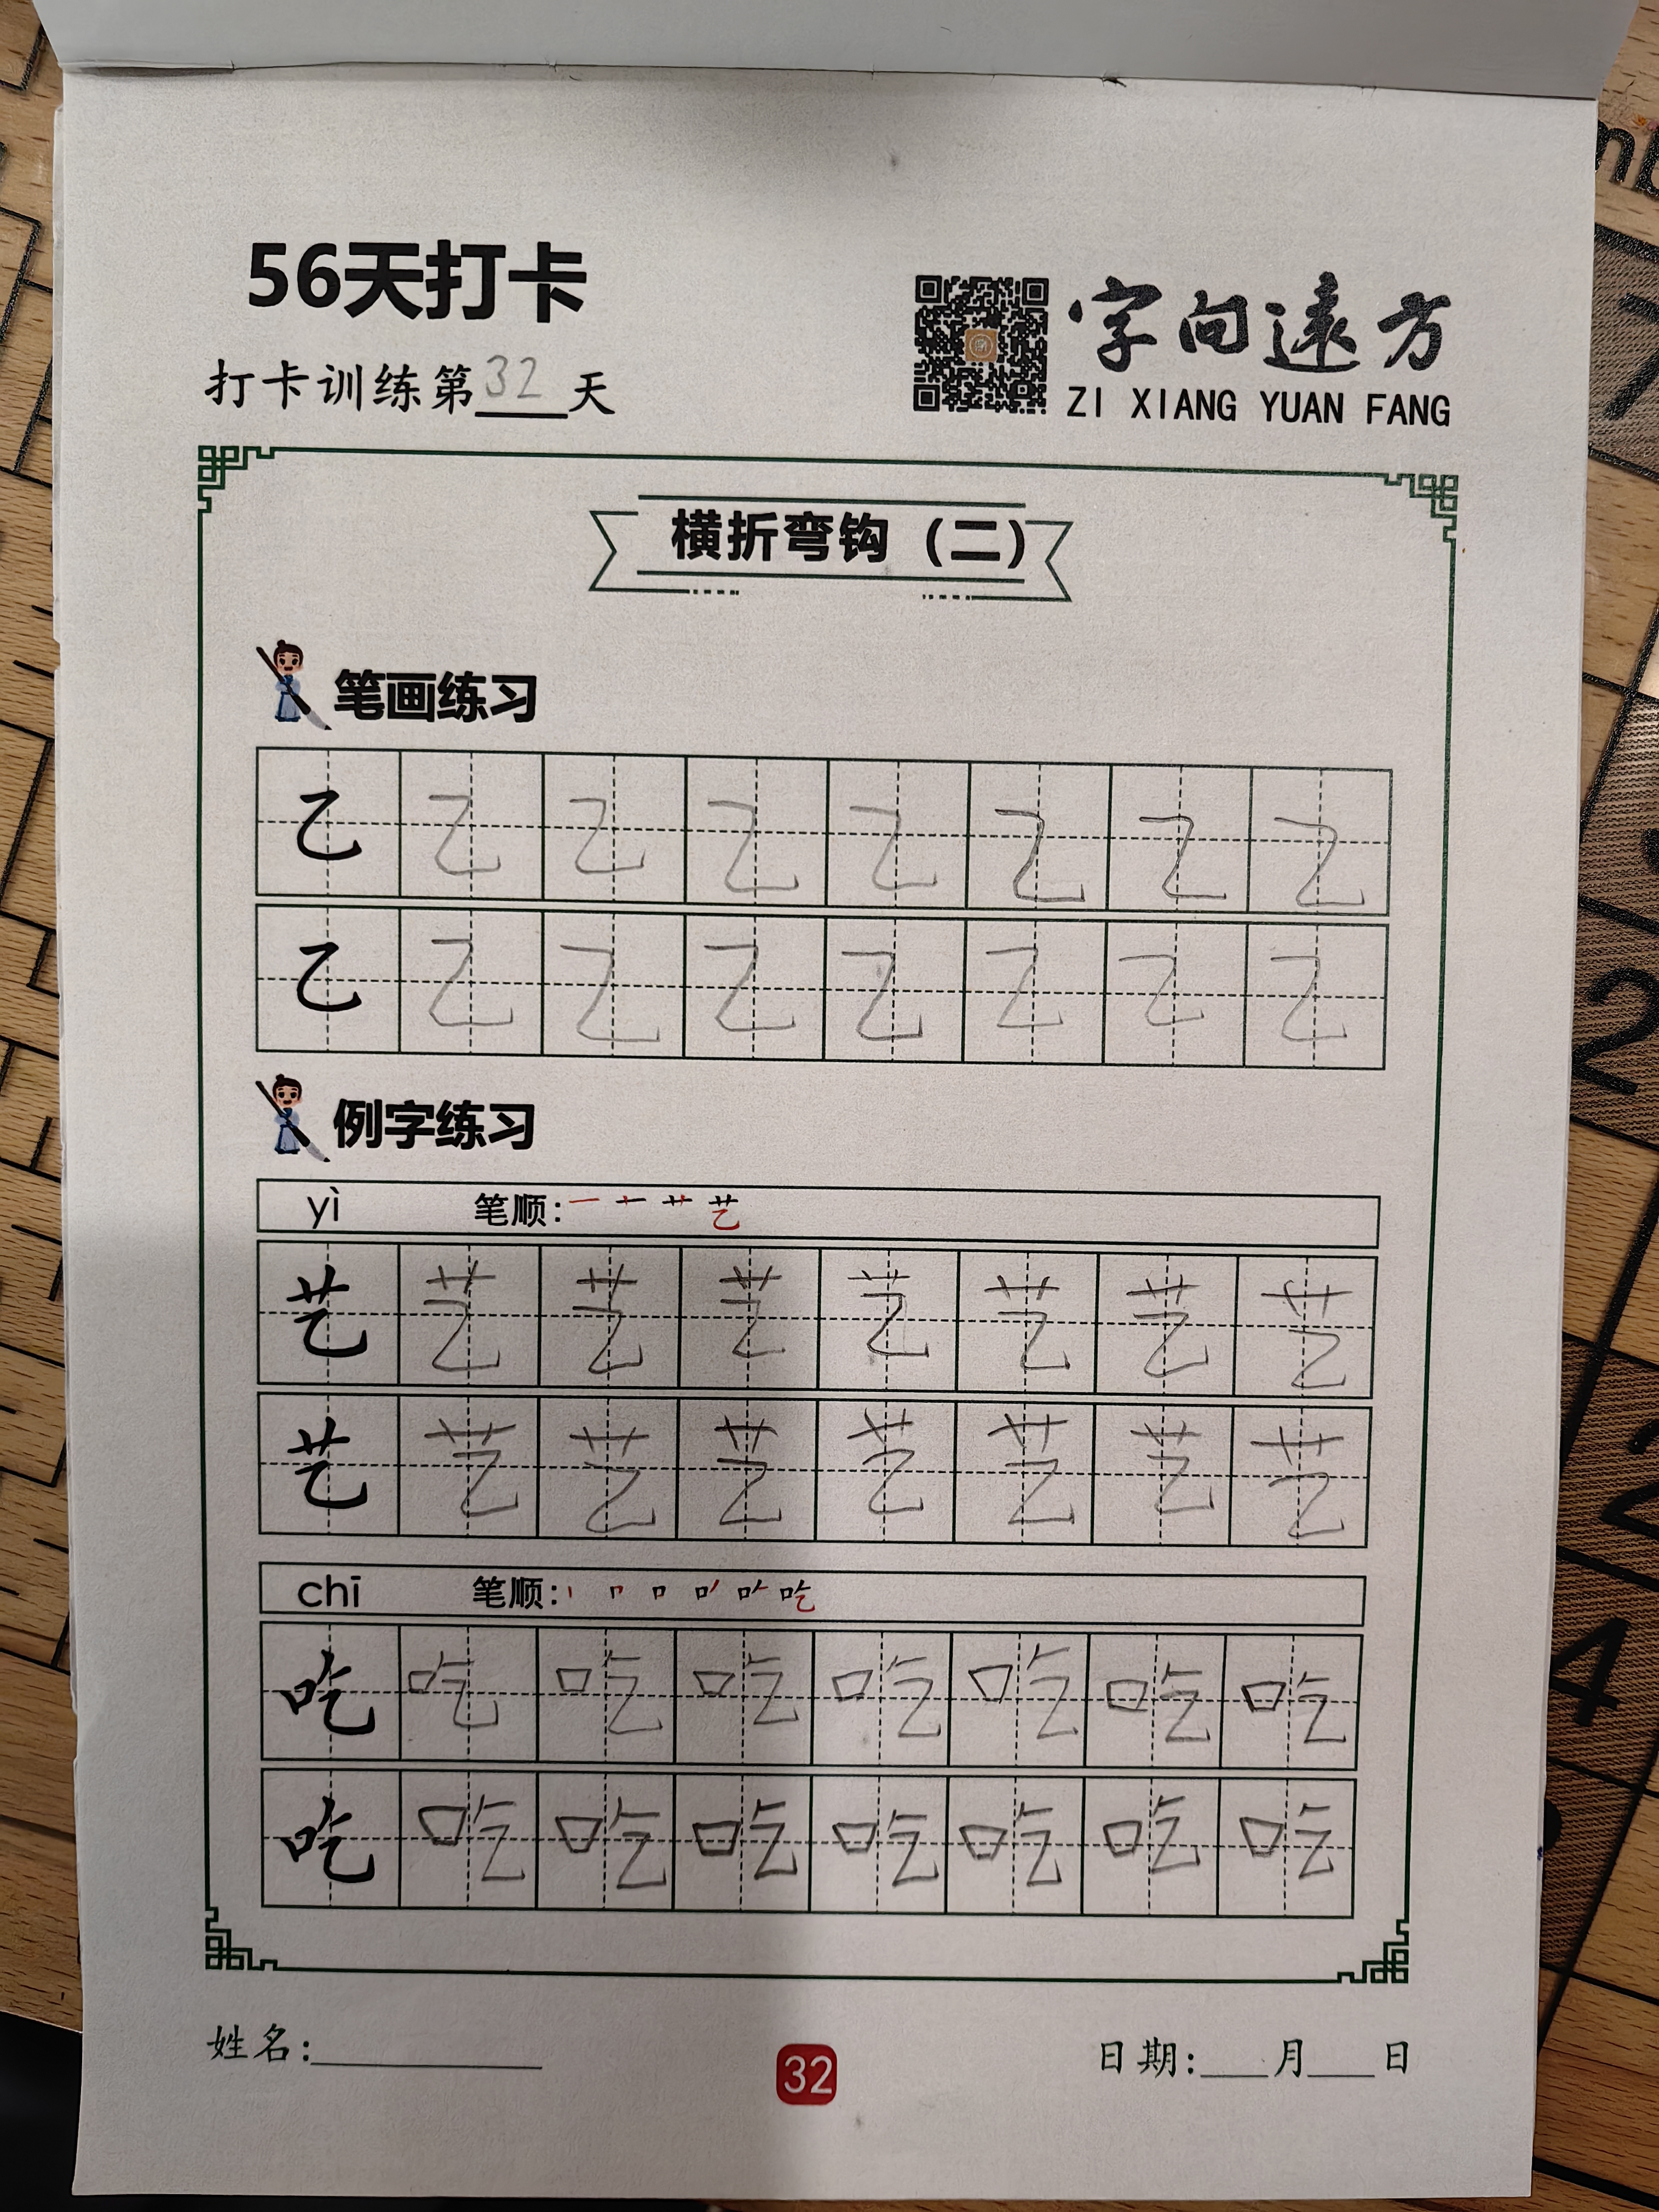 56天打卡
打卡训练第32天
字向遠方
ZI XIANG YUAN FANG
横折弯钩（二）
笔画练习
乙 乙 乙 乙 乙 乙 乙 乙
乙 乙 乙 乙 乙 乙 乙 乙
例字练习
yì 笔顺: 一 十 艹 艺
艺 艺 艺 艺 艺 艺 艺 艺
艺 艺 艺 艺 艺 艺 艺 艺
chī 笔顺: 吃
吃 吃 吃 吃 吃 吃 吃 吃
吃 吃 吃 吃 吃 吃 吃 吃
姓名:
32
日期: 月 日